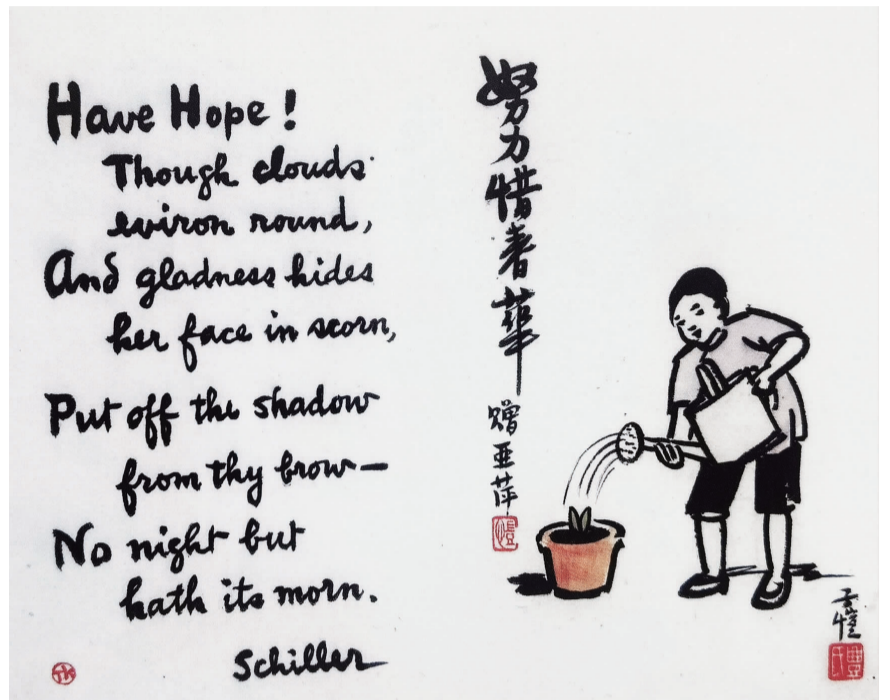 Have Hope!
Though clouds
eviron round,
And gladness hides
her face in scorn,
Put off the shadow
from thy brow—
No night but
hath its morn.
Schiller
TK
努力惜春華
贈亞萍
愷
子愷
豐氏